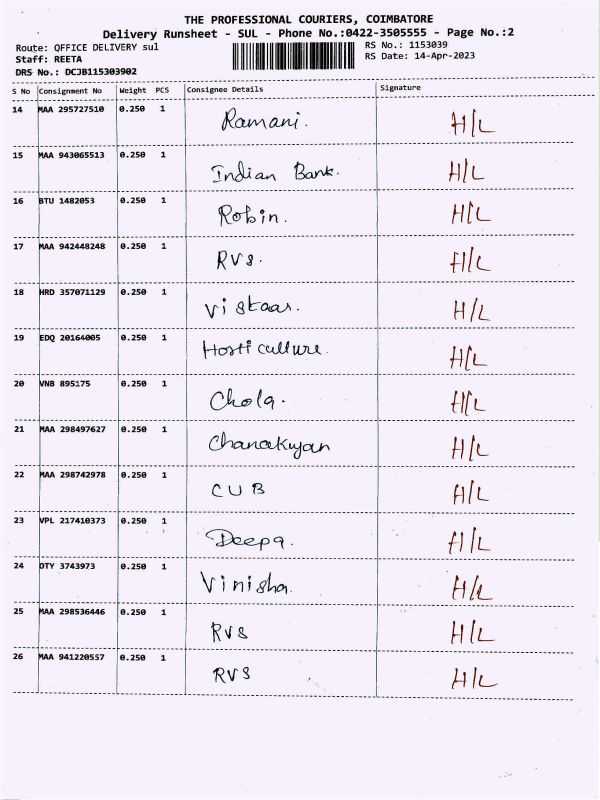 THE PROFESSIONAL COURIERS, COIMBATORE
Delivery Runsheet - SUL - Phone No.:0422-3505555 - Page No.:2
Route: OFFICE DELIVERY sul
RS No.: 1153039
Staff: REETA
RS Date: 14-Apr-2023
DRS No.: DCJB115303902
S No Consignment No Weight PCS Consignee Details Signature
14 MAA 295727510 0.250 1 Ramani. H/L
15 MAA 943065513 0.250 1 Indian Bank. H/L
16 BTU 1482053 0.250 1 Robin. H/L
17 MAA 942448248 0.250 1 RVS. H/L
18 HRD 357071129 0.250 1 Viskaas. H/L
19 EDQ 20164005 0.250 1 Horticulture. H/L
20 VNB 895175 0.250 1 Chola. H/L
21 MAA 298497627 0.250 1 Chanakyan H/L
22 MAA 298742978 0.250 1 CUB H/L
23 VPL 217410373 0.250 1 Deepa. H/L
24 DTY 3743973 0.250 1 Vinisha. H/L
25 MAA 298536446 0.250 1 RVS H/L
26 MAA 941220557 0.250 1 RVS H/L